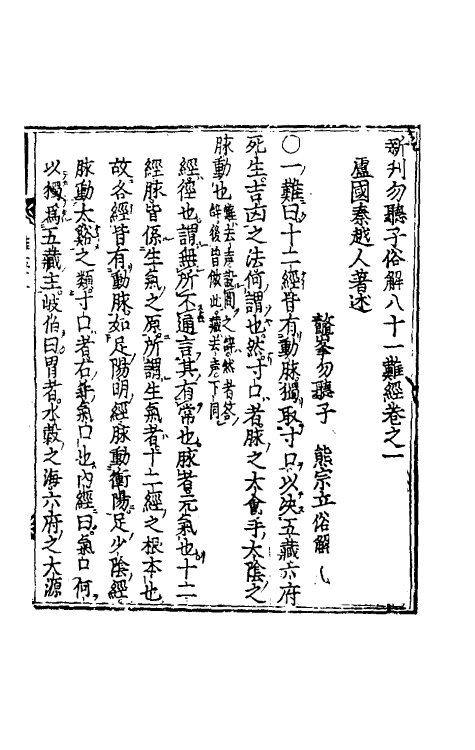 新刊勿聽子俗解八十一難經卷之一
盧國秦越人著述
鼇峯勿聽子 熊宗立俗解
〇一難曰十二經皆有動脉獨取寸口以決五藏六府
死生吉凶之法何謂也然寸口者脉之大會手太陰之
脉動也難去声設問之辞然者答辞後皆倣此藏去声下同
經徑也謂無所不通言其有常也脉者元氣也十二
經脉皆係生氣之原所謂生氣者十二經之根本也
故各經皆有動脉如足陽明經脉動衝陽足少陰經
脉動太谿之類寸口者右手氣口也内經曰氣口何
以獨爲五藏主岐伯曰胃者水穀之海六府之大源